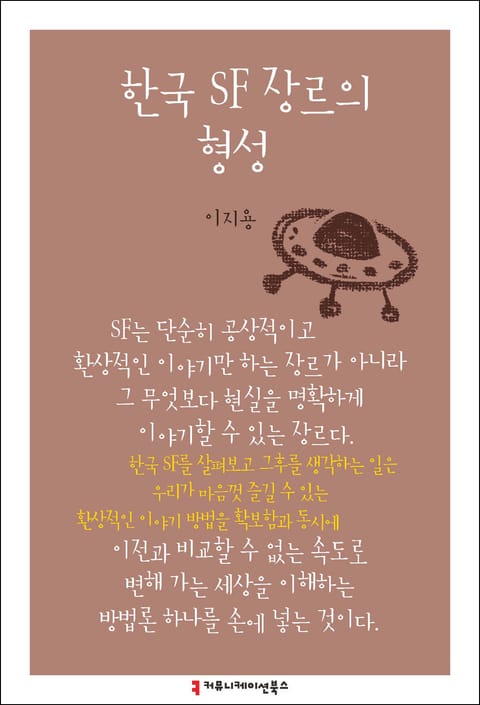 한국 SF 장르의
형성
이지용
SF는 단순히 공상적이고
환상적인 이야기만 하는 장르가 아니라
그 무엇보다 현실을 명확하게
이야기할 수 있는 장르다.
한국 SF를 살펴보고 그후를 생각하는 일은
우리가 마음껏 즐길 수 있는
환상적인 이야기 방법을 확보함과 동시에
이전과 비교할 수 없는 속도로
변해 가는 세상을 이해하는
방법론 하나를 손에 넣는 것이다.
커뮤니케이션북스